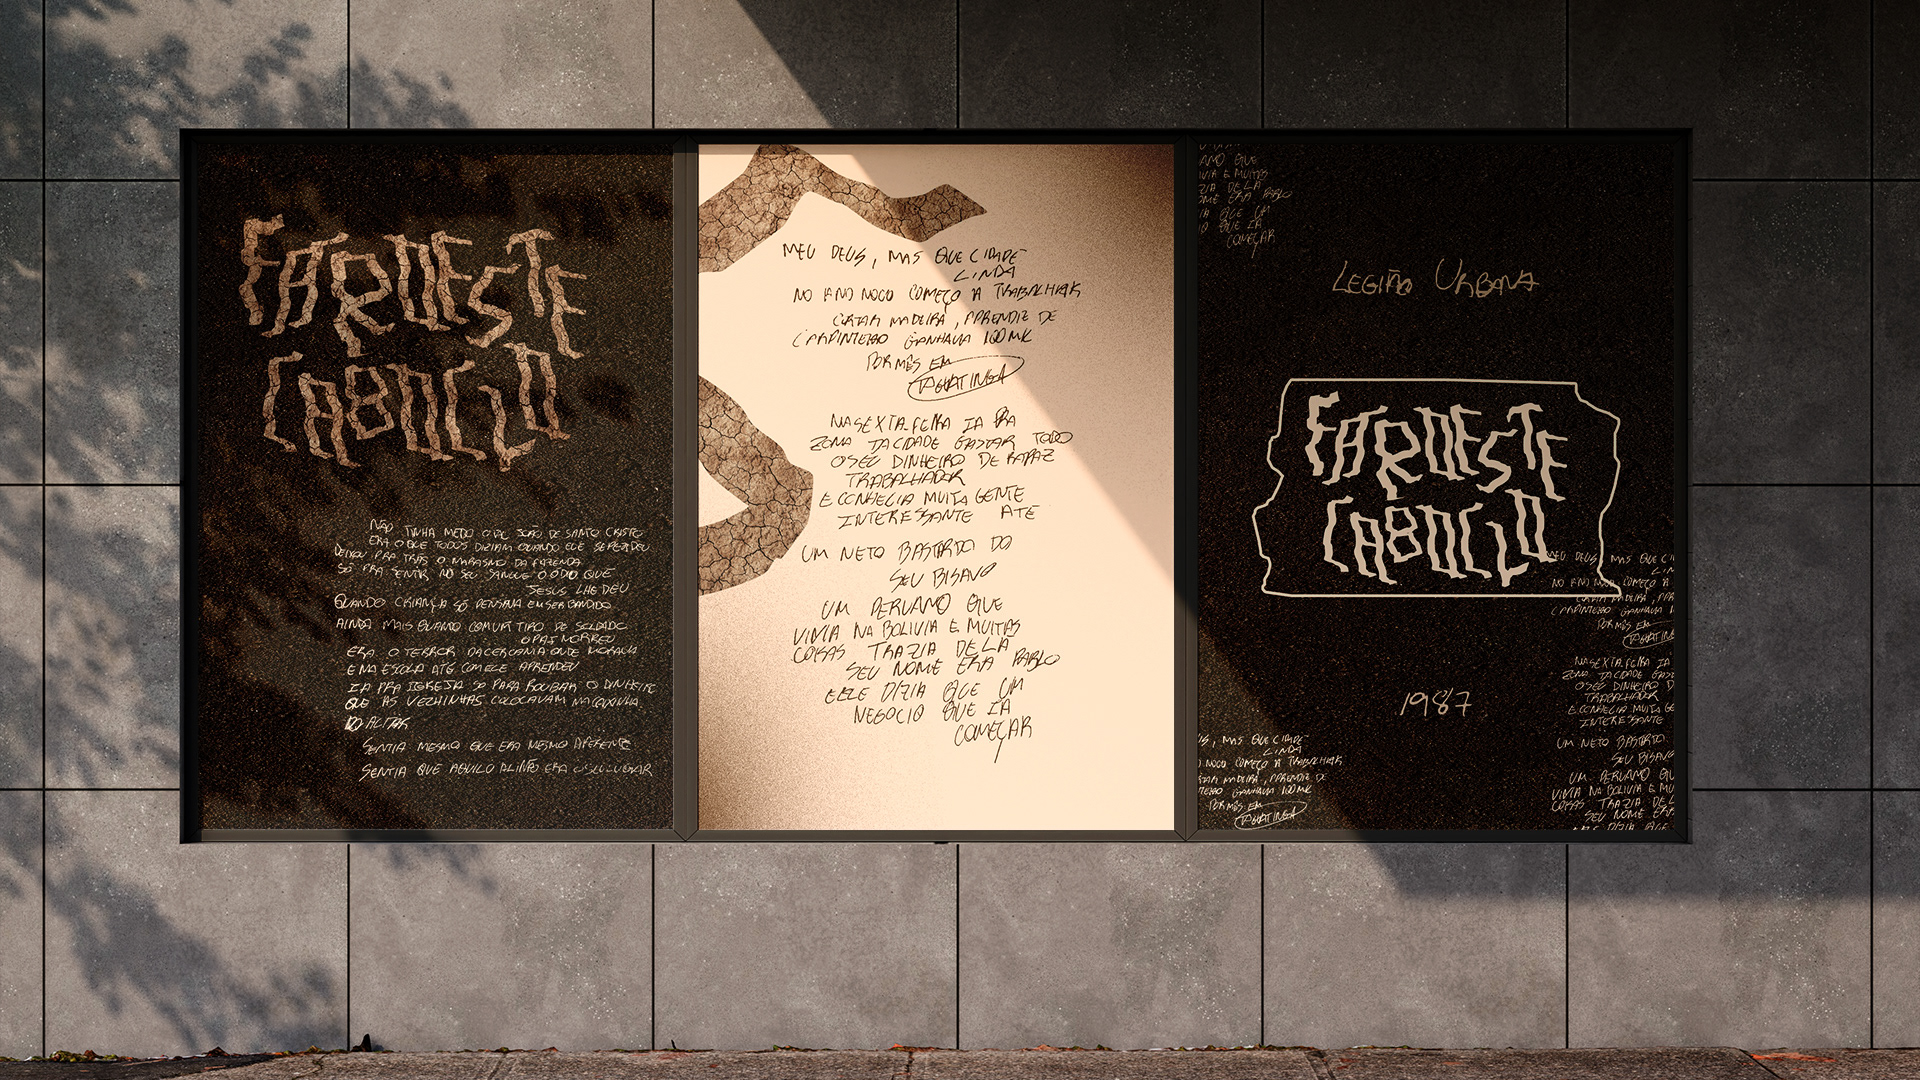 FAROESTE
CABOCLO
NÃO TINHA MEDO O TAL JOÃO DE SANTO CRISTO
ERA O QUE TODOS DIZIAM QUANDO ELE SE PERDEU
DEIXOU PRA TRÁS O MARASMO DA FAZENDA
SÓ PRA SENTIR NO SEU SANGUE O ÓDIO QUE
JESUS LHE DEU
QUANDO CRIANÇA SÓ PENSAVA EM SER BANDIDO
AINDA MAIS QUANDO COM UM TIRO DE SOLDADO
O PAI MORREU
ERA O TERROR DA CERCANIA ONDE MORAVA
E NA ESCOLA ATÉ COM ELE APRENDEU
IA PRA IGREJA SÓ PARA ROUBAR O DINHEIRO
QUE AS VELHINHAS COLOCAVAM NA CAIXINHA
DO ALTAR
SENTIA MESMO QUE ERA MESMO DIFERENTE
SENTIA QUE AQUILO ALI NÃO ERA O SEU LUGAR
MEU DEUS, MAS QUE CIDADE
LINDA
NO ANO NOVO COMEÇO A TRABALHAR
CORTAR MADEIRA, APRENDIZ DE
CARPINTEIRO GANHAVA 100 MIL
POR MÊS EM
TAGUATINGA
NA SEXTA-FEIRA IA PRA
ZONA DA CIDADE GASTAR TODO
O SEU DINHEIRO DE RAPAZ
TRABALHADOR
E CONHECIA MUITA GENTE
INTERESSANTE ATÉ
UM NETO BASTARDO DO
SEU BISAVÔ
UM PERUANO QUE
VIVIA NA BOLIVIA E MUITAS
COISAS TRAZIA DE LÁ
SEU NOME ERA PABLO
E ELE DIZIA QUE UM
NEGOCIO QUE IA
COMEÇAR
ANO QUE
VIVIA E MUITAS
ZIA DE LA
OME ERA PABLO
IA QUE UM
IO QUE IA
COMEÇAR
LEGIÃO URBANA
FAROESTE
CABOCLO
1987
MEU DEUS, MAS QUE CI
LIN
NO ANO NOVO COMEÇO A
CORTAR MADEIRA, APR
CARPINTEIRO GANHAVA
POR MÊS EM
TAGUATING
NA SEXTA-FEIRA IA
ZONA DA CIDADE GAST
O SEU DINHEIRO D
TRABALHADOR
E CONHECIA MUITA GE
INTERESSANTE
UM NETO BASTARDO
SEU BISAVÔ
UM PERUANO QU
VIVIA NA BOLIVIA E MU
COISAS TRAZIA DE L
SEU NOME ERA
E ELE DIZIA QUE
US, MAS QUE CIDADE
LINDA
NOVO COMEÇO A TRABALHAR
TAR MADEIRA, APRENDIZ DE
TEIRO GANHAVA 100 MIL
POR MÊS EM
TAGUATINGA